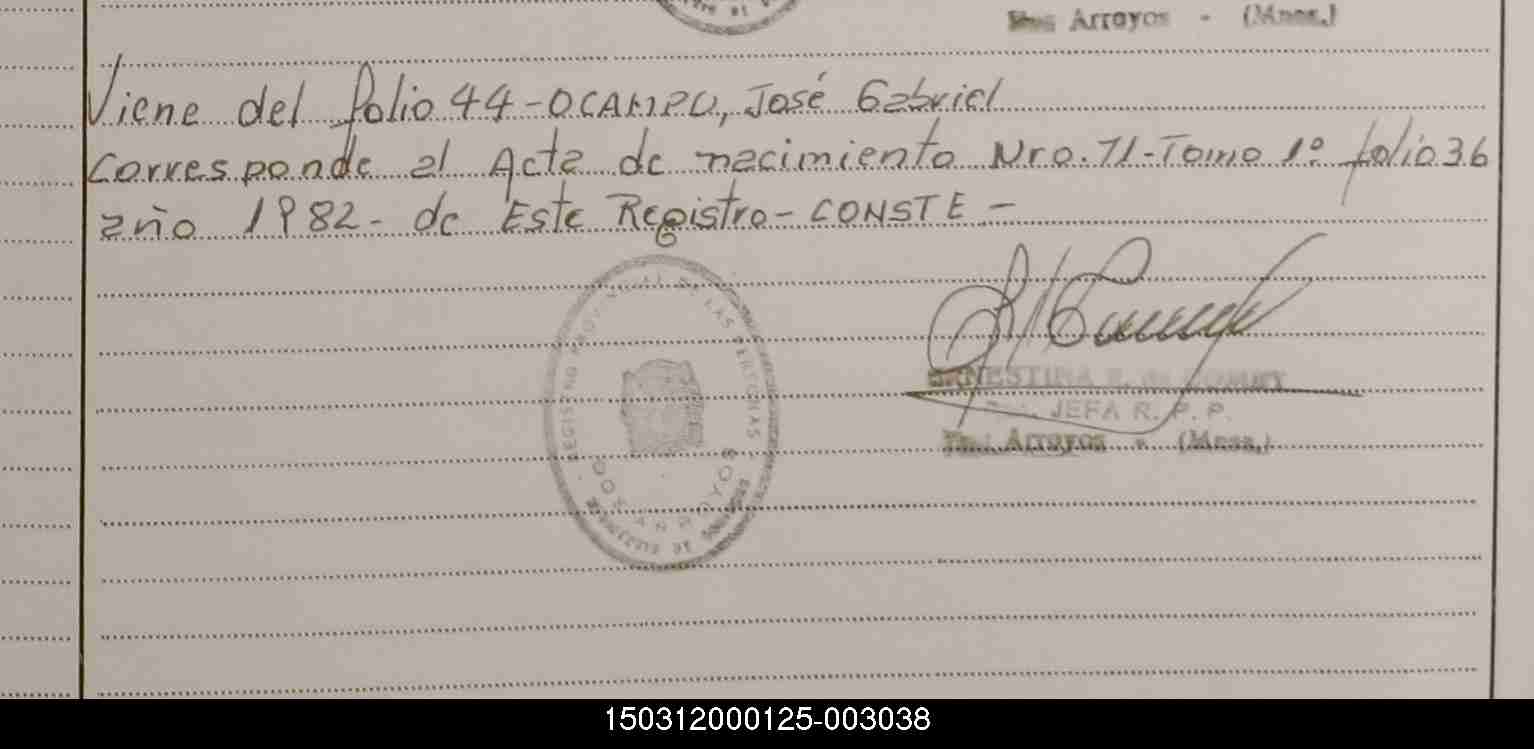 Dos Arroyos - (Mnes.)
Viene del folio 44 - OCAMPO, José Gabriel
Corresponde al Acta de nacimiento Nro. 71 - Tomo 1º folio 36
año 1982 - de Este Registro - CONSTE -
REGISTRO PROVINCIAL DE LAS PERSONAS
DOS ARROYOS
ERNESTINA E. de
JEFA R. P. P.
Dos Arroyos - (Mnes.)
150312000125-003038